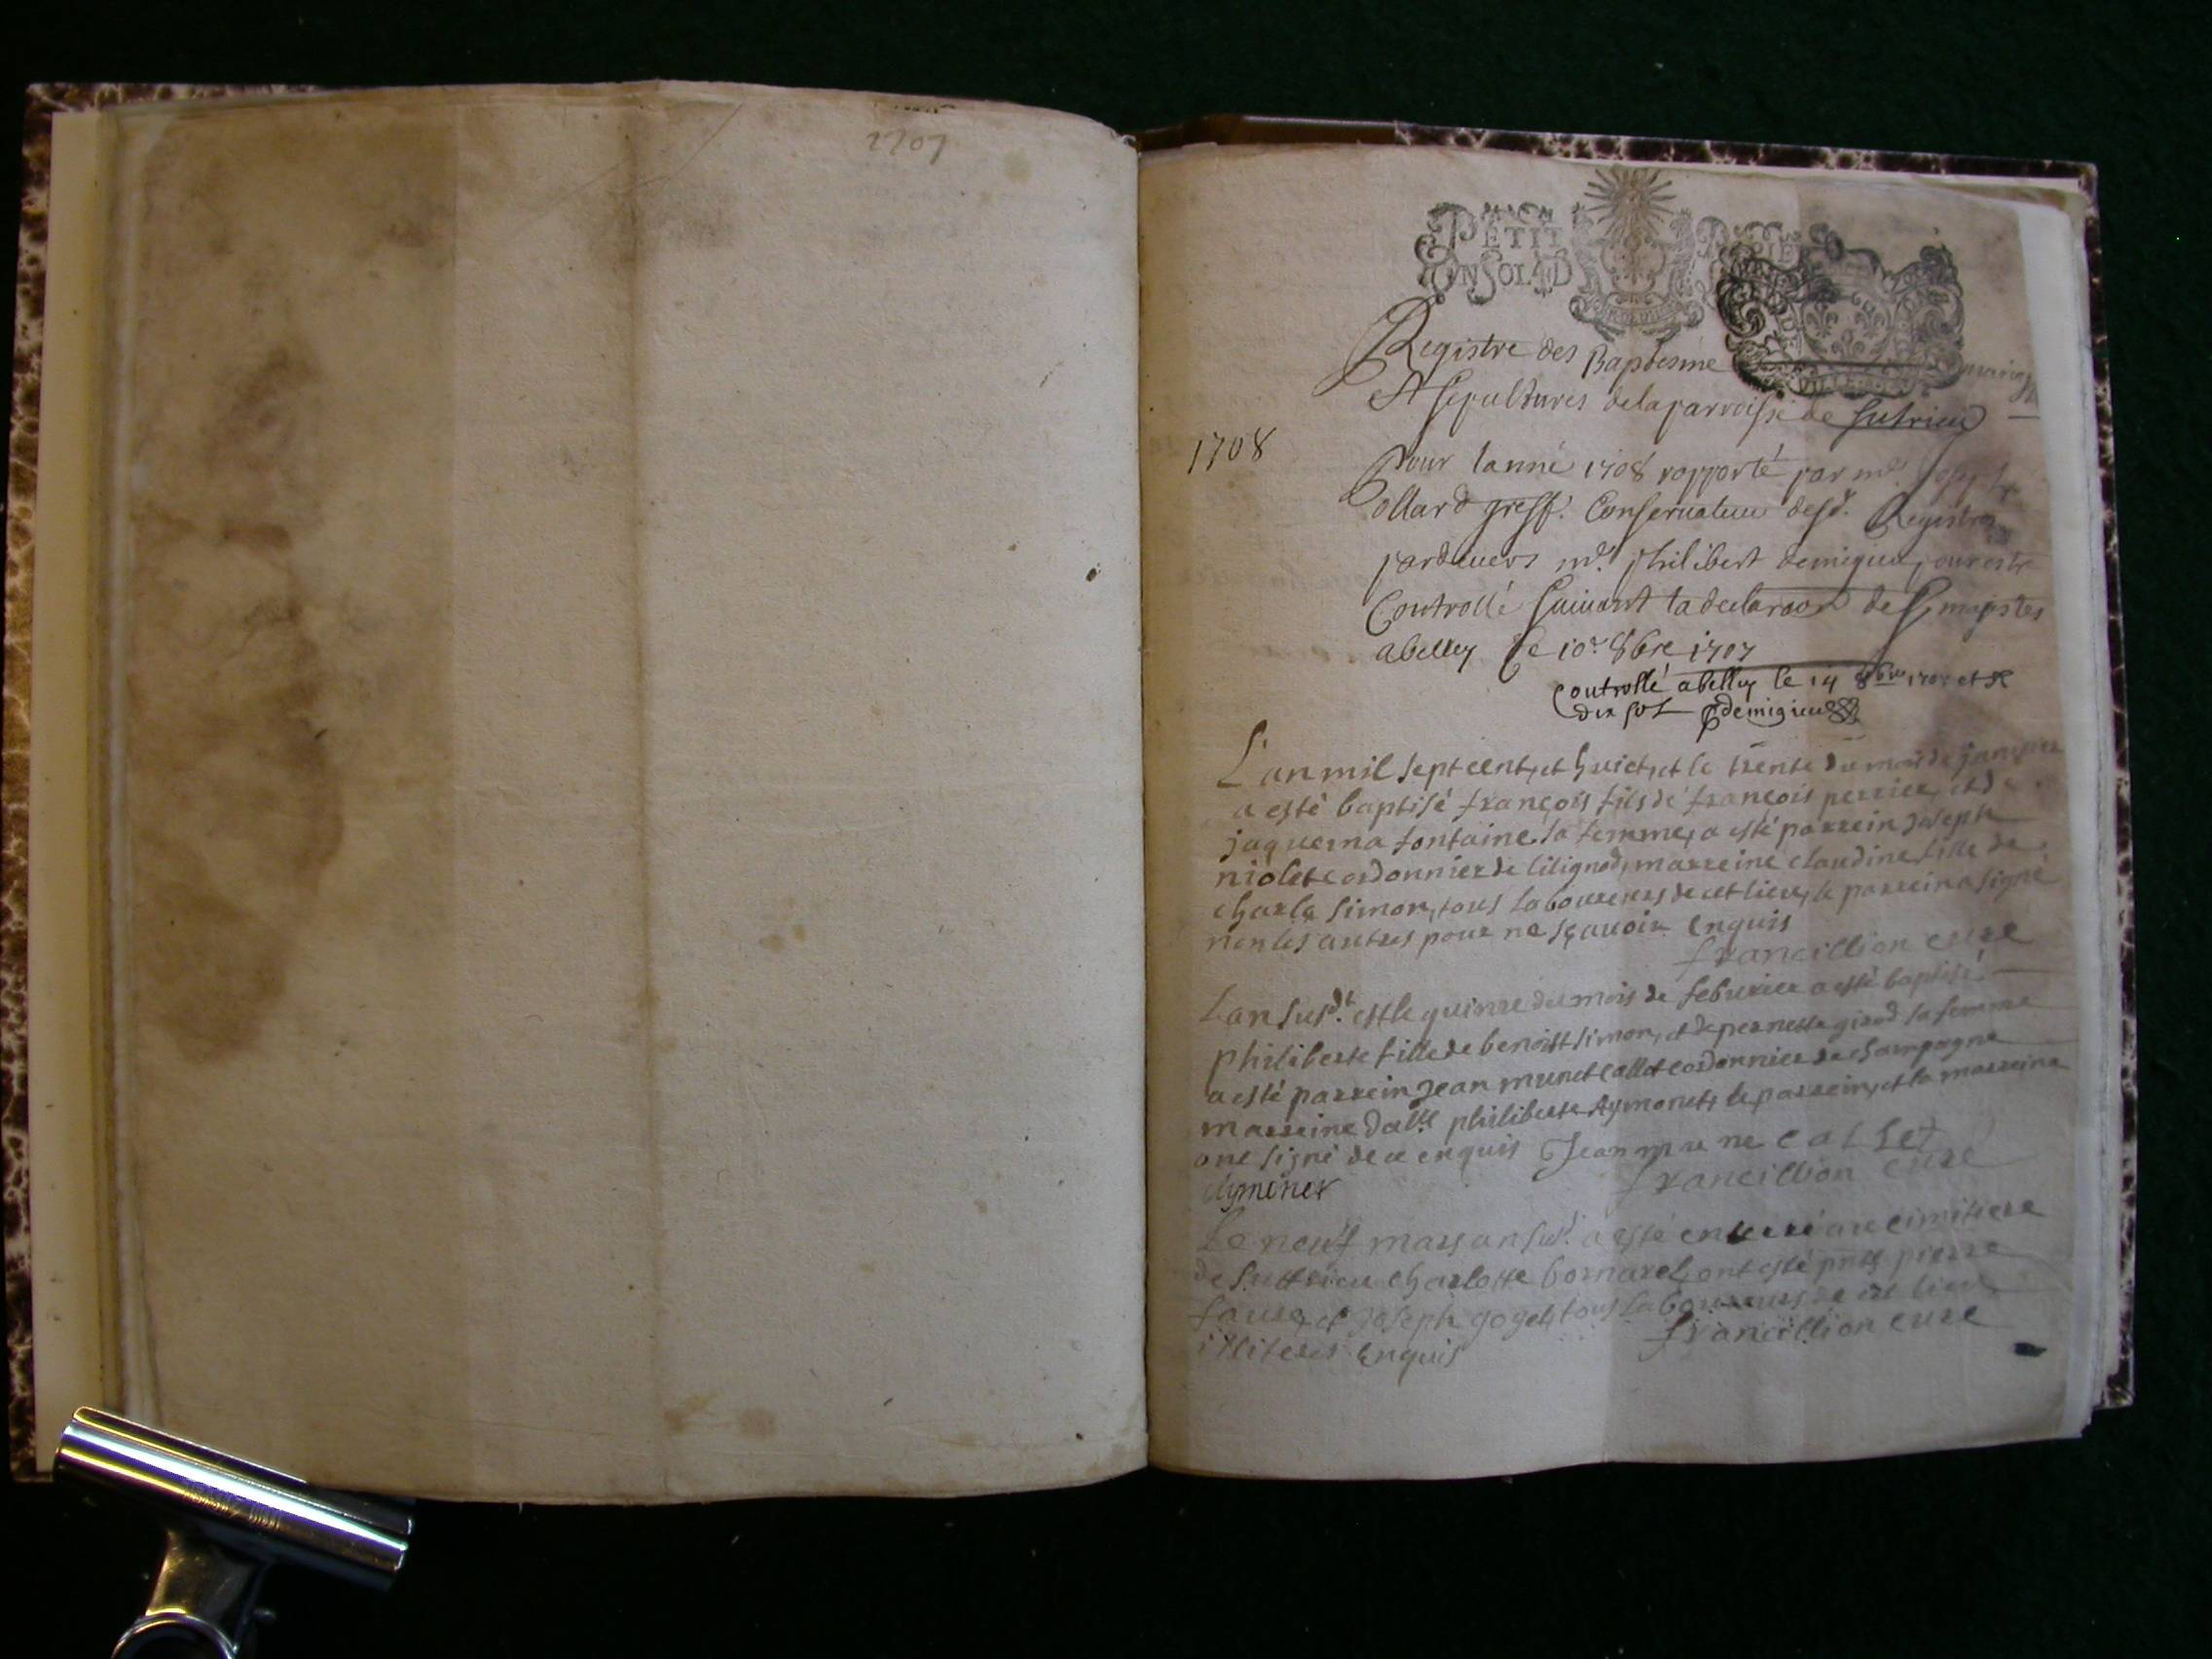 1707
PETIT
EN SOL D
Registre des Baptesme mariag
Et sepultures de la parroisse de Sutrieu
1708
Pour lanné 1708 rapporté par mr. Joseph
ollard greff. Conservateur desd. Registres
pardevers mr. philibert demigieu pour estre
Controllé suivant la declaraon de Sa majestes
abelley le 10e 8bre 1707
Controllé abelley le 14 8bre 1707 et R
dix sols demigieu
L'an mil sept cent, et huict, et le trente du mois de janvier
a esté baptisé françois fils de françois perrier, et de
jaquema fontaine sa femme, a esté parrein joseph
niolet cordonnier de lilignod, marreine claudine fille de
charle simon, tous laboureurs de cet lieu, le parrein a signé
non les autres pour ne sçavoir enquis
francillion curé
Lan susdt. est le quinze du mois de febvrier a esté baptisé
philiberte fille de benoist simon, et de pernette girod sa femme
a esté parrein Jean munet callet cordonnier de champagne
marreine dalle philiberte Aymonet, le parrein, et la marreine
ont signé de ce enquis Jean mune callet
Aymonet francillion curé
Le neuf mars an sud. a esté enterré au cimitiere
de suttrieu charlotte bornarel, ont esté pnts pierre
faure, et joseph goget, tous laboureurs de cet lieu
illiteres enquis francillion curé